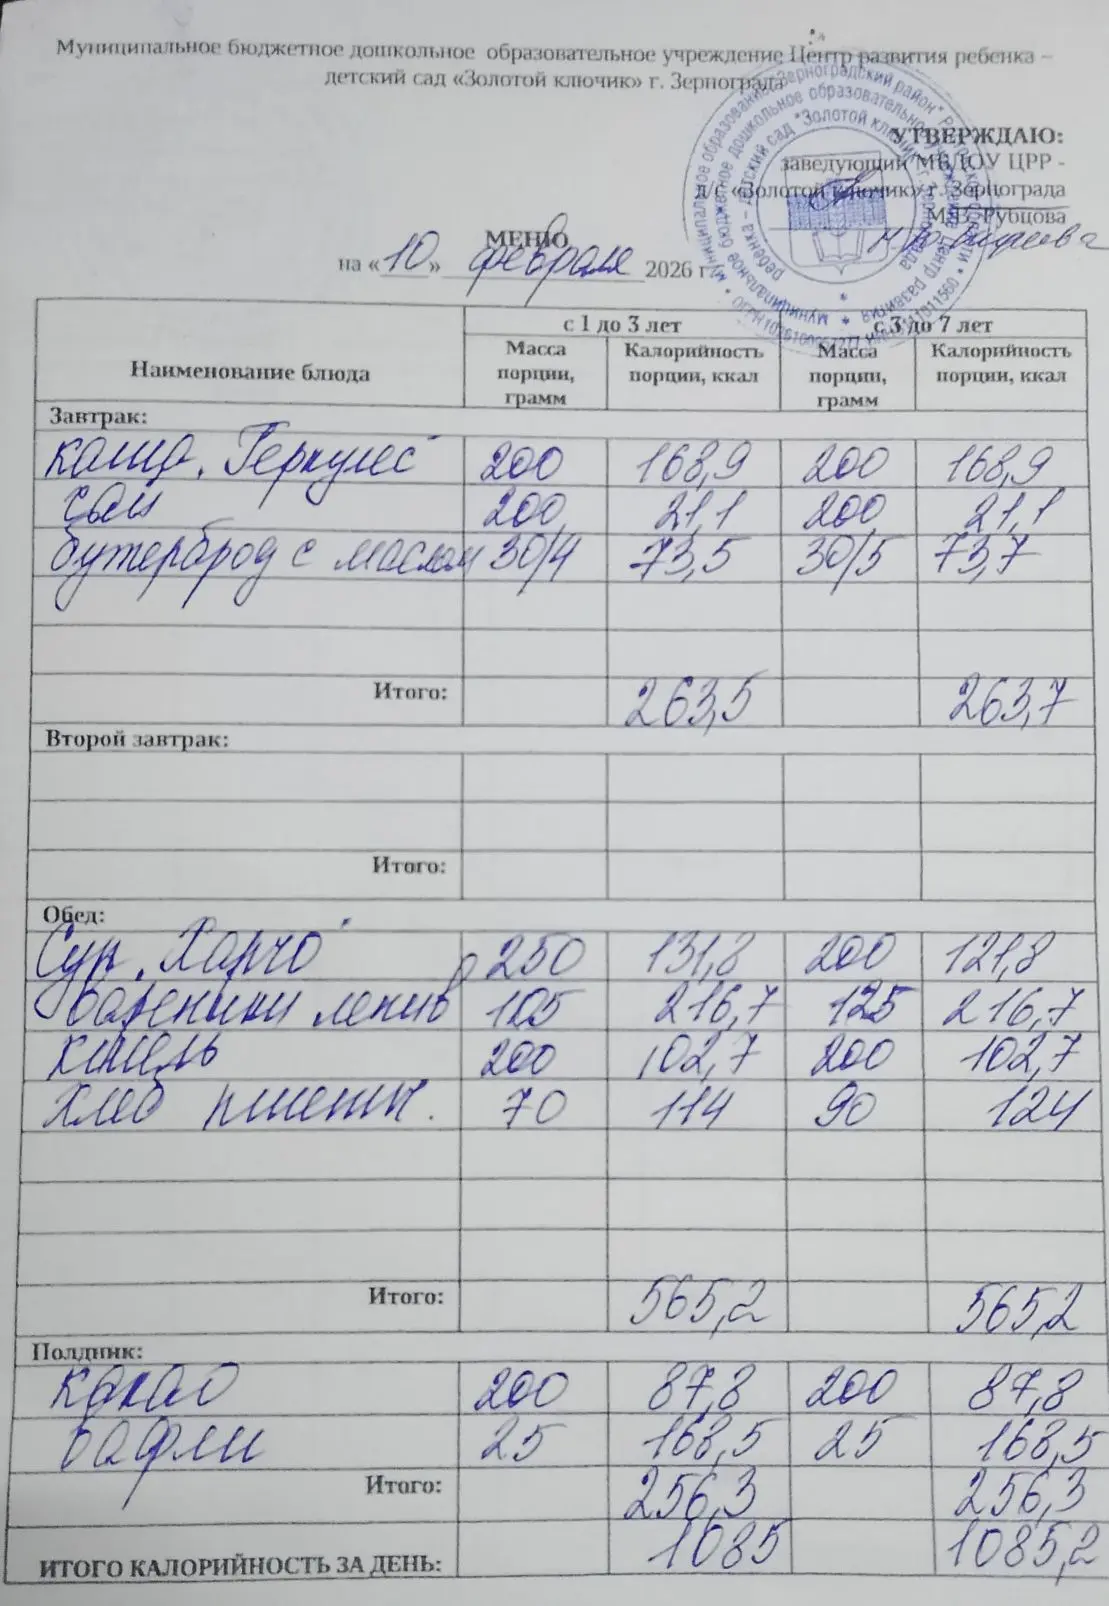 Муниципальное бюджетное дошкольное образовательное учреждение Центр развития ребенка –
детский сад «Золотой ключик» г. Зернограда
УТВЕРЖДАЮ:
заведующий МБДОУ ЦРР -
д/с «Золотой ключик» г. Зернограда
М.В. Рубцова
МЕНЮ
на «10» февраля 2026 г.
Наименование блюда с 1 до 3 лет с 3 до 7 лет
Масса порции, грамм Калорийность порции, ккал Масса порции, грамм Калорийность порции, ккал
Завтрак:
каша "Геркулес" 200 168,9 200 168,9
чай 200 21,1 200 21,1
бутерброд с маслом 30/4 73,5 30/5 73,7
Итого: 263,5 263,7
Второй завтрак:
Итого:
Обед:
Суп "Харчо" 250 131,8 200 121,8
вареники ленив 105 216,7 125 216,7
кисель 200 102,7 200 102,7
хлеб пшенич. 70 114 90 124
Итого: 565,2 565,2
Полдник:
какао 200 87,8 200 87,8
вафли 25 168,5 25 168,5
Итого: 256,3 256,3
ИТОГО КАЛОРИЙНОСТЬ ЗА ДЕНЬ: 1085 1085,2